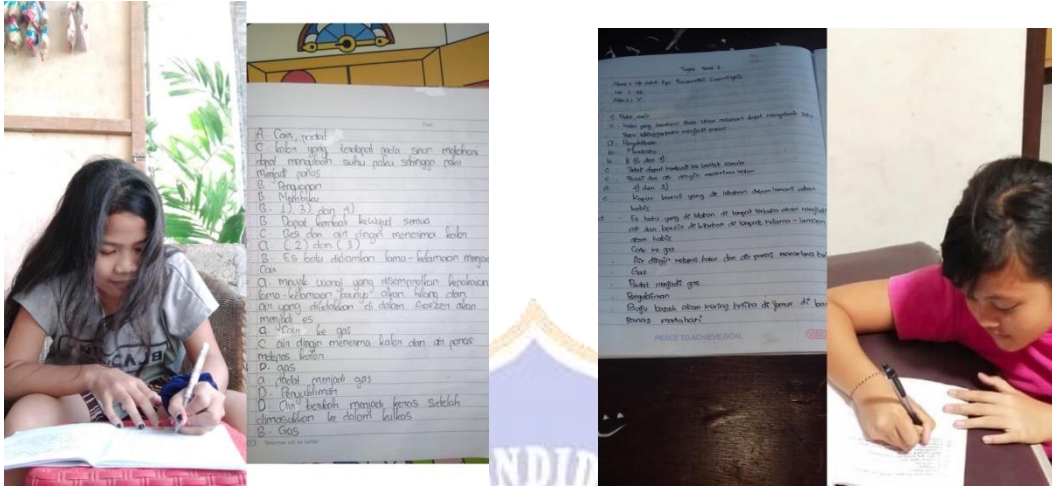 A. Cair, padat
C. kalor yang terdapat pada sinar matahari
dapat mengubah suhu paku sehingga paku
menjadi panas
B. Penguapan
B. Membeku
B. 1) 3) dan 4)
B. Dapat kembali kewujud semua
C. Besi dan air dingin menerima kalor
a. (2) dan (3)
B. Es batu didiamkan lama-kelamaan menjadi
Cair
a. minyak wangi yang disemprotkan
lama-kelamaan akan hilang dan
air yang diletakkan di dalam freezer akan
menjadi es
a. Cair ke gas
C. air dingin menerima kalor dan air panas
melepas kalor
D. gas
a. padat menjadi gas
D. Penyubliman
D. air berubah menjadi keras setelah
dimasukkan ke dalam kulkas
B. Gas
Tugas Tema 7
Nama :
No :
Kelas : V
C. Padat, cair
a. Penyubliman
b. Membeku
b. 3) dan 4)
c. Tidak dapat kembali ke bentuk semula
c. Besi dan air dingin menerima kalor
a. 2) dan 3)
c. Kapur barus yang di letakan dalam lemari akan
habis
Es batu yang di letakan di tempat terbuka akan menjadi
air dan bensin di letakan di tempat
akan habis
Cair ke gas
Air dingin melepas kalor dan air panas menerima kalor
Gas
Padat menjadi gas
Penyubliman
Baju basah akan kering ketika di jemur di bawah
Panas matahari
PEACE TO ACHIEVE GOAL
NDID